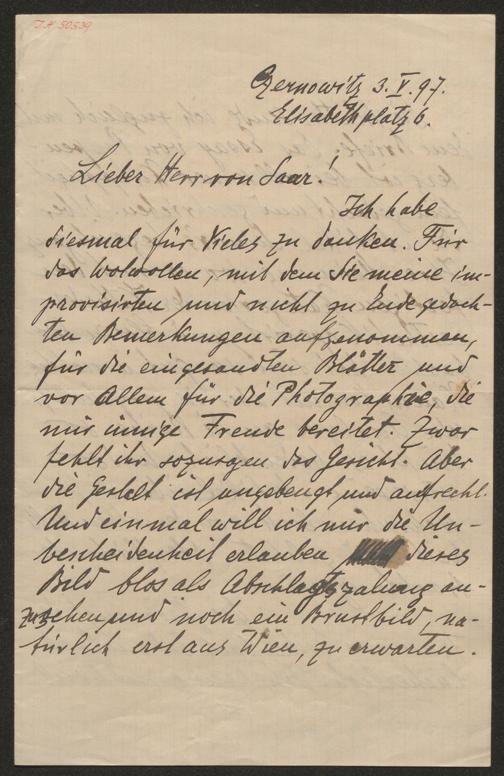 I.N. 50539
Czernowitz 3. V. 97.
Elisabethplatz 6.
Lieber Herr von Saar!
Ich habe
diesmal für Vieles zu danken. Für
das Wolwollen, mit dem Sie meine im-
provisirten und nicht zu Ende gedach-
ten Bemerkungen aufgenommen,
für die eingesandten Blätter und
vor Allem für die Photographie, die
mir innige Freude bereitet. Zwar
fehlt ihr sozusagen das Gesicht. Aber
die Gestalt ist ungebeugt und aufrecht.
Und einmal will ich mir die Un-
bescheidenheit erlauben dieses
Bild blos als Abschlagszalung an-
zusehen und noch ein Brustbild, na-
türlich erst aus Wien, zu erwarten.